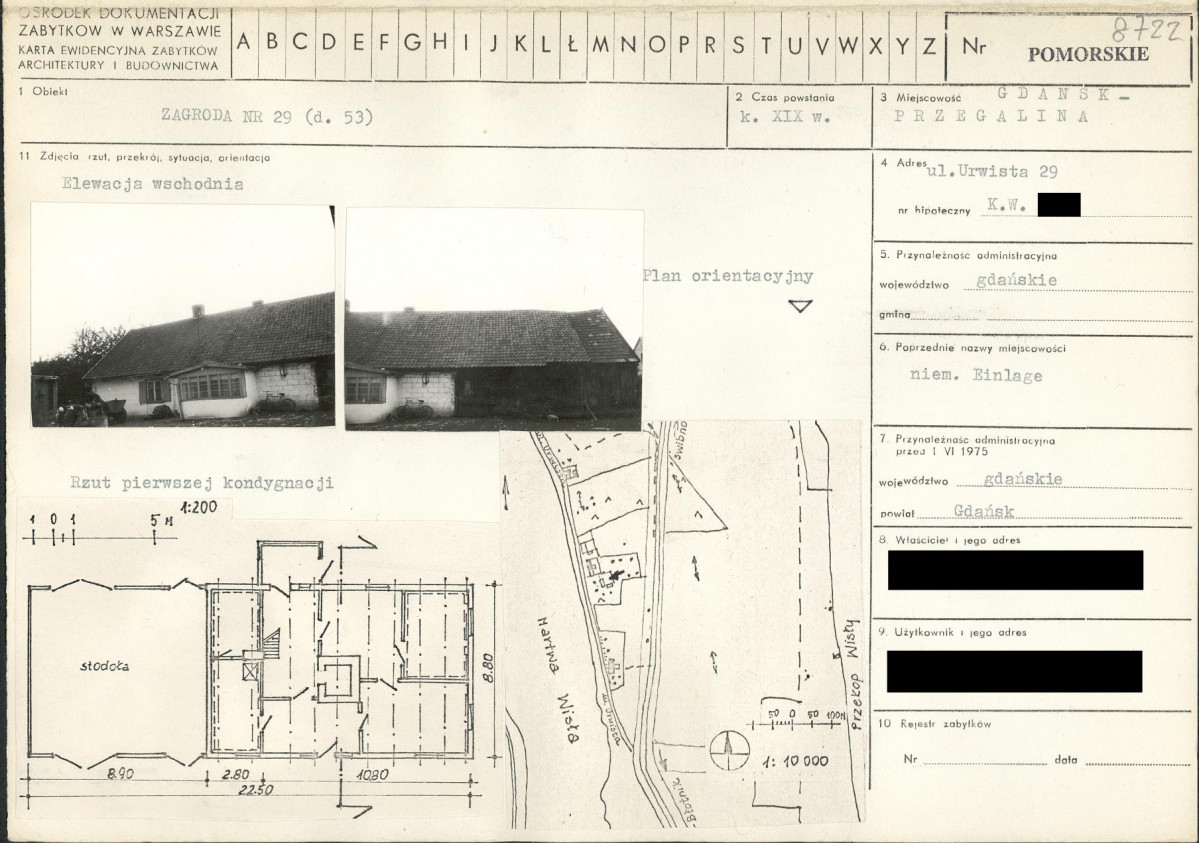 OŚRODEK DOKUMENTACJI
ZABYTKÓW W WARSZAWIE
KARTA EWIDENCYJNA ZABYTKÓW
ARCHITEKTURY I BUDOWNICTWA
A B C D E F G H I J K L Ł M N O P R S T U V W X Y Z
Nr
8722
POMORSKIE
1 Obiekt
ZAGRODA NR 29 (d. 53)
2 Czas powstania
k. XIX w.
3 Miejscowość GDAŃSK-
PRZEGALINA
11 Zdjęcia rzut, przekrój, sytuacja, orientacja
Elewacja wschodnia
Plan orientacyjny
4 Adres ul.Urwista 29
nr hipoteczny K.W.
5. Przynależność administracyjna
województwo gdańskie
gmina
6. Poprzednie nazwy miejscowości
niem. Einlage
7. Przynależność administracyjna
przed 1 VI 1975
województwo gdańskie
powiat Gdańsk
8. Właściciel i jego adres
9. Użytkownik i jego adres
10 Rejestr zabytków
Nr data
Rzut pierwszej kondygnacji
1:200
1 0 1 5 M
stodoła
8.80
8.90 2.80 10.80
22.50
Świbno
ul. Urwista
Martwa Wisła
ul. Urwista
Przekop Wisły
Błotnik
50 0 50 100M
1: 10 000